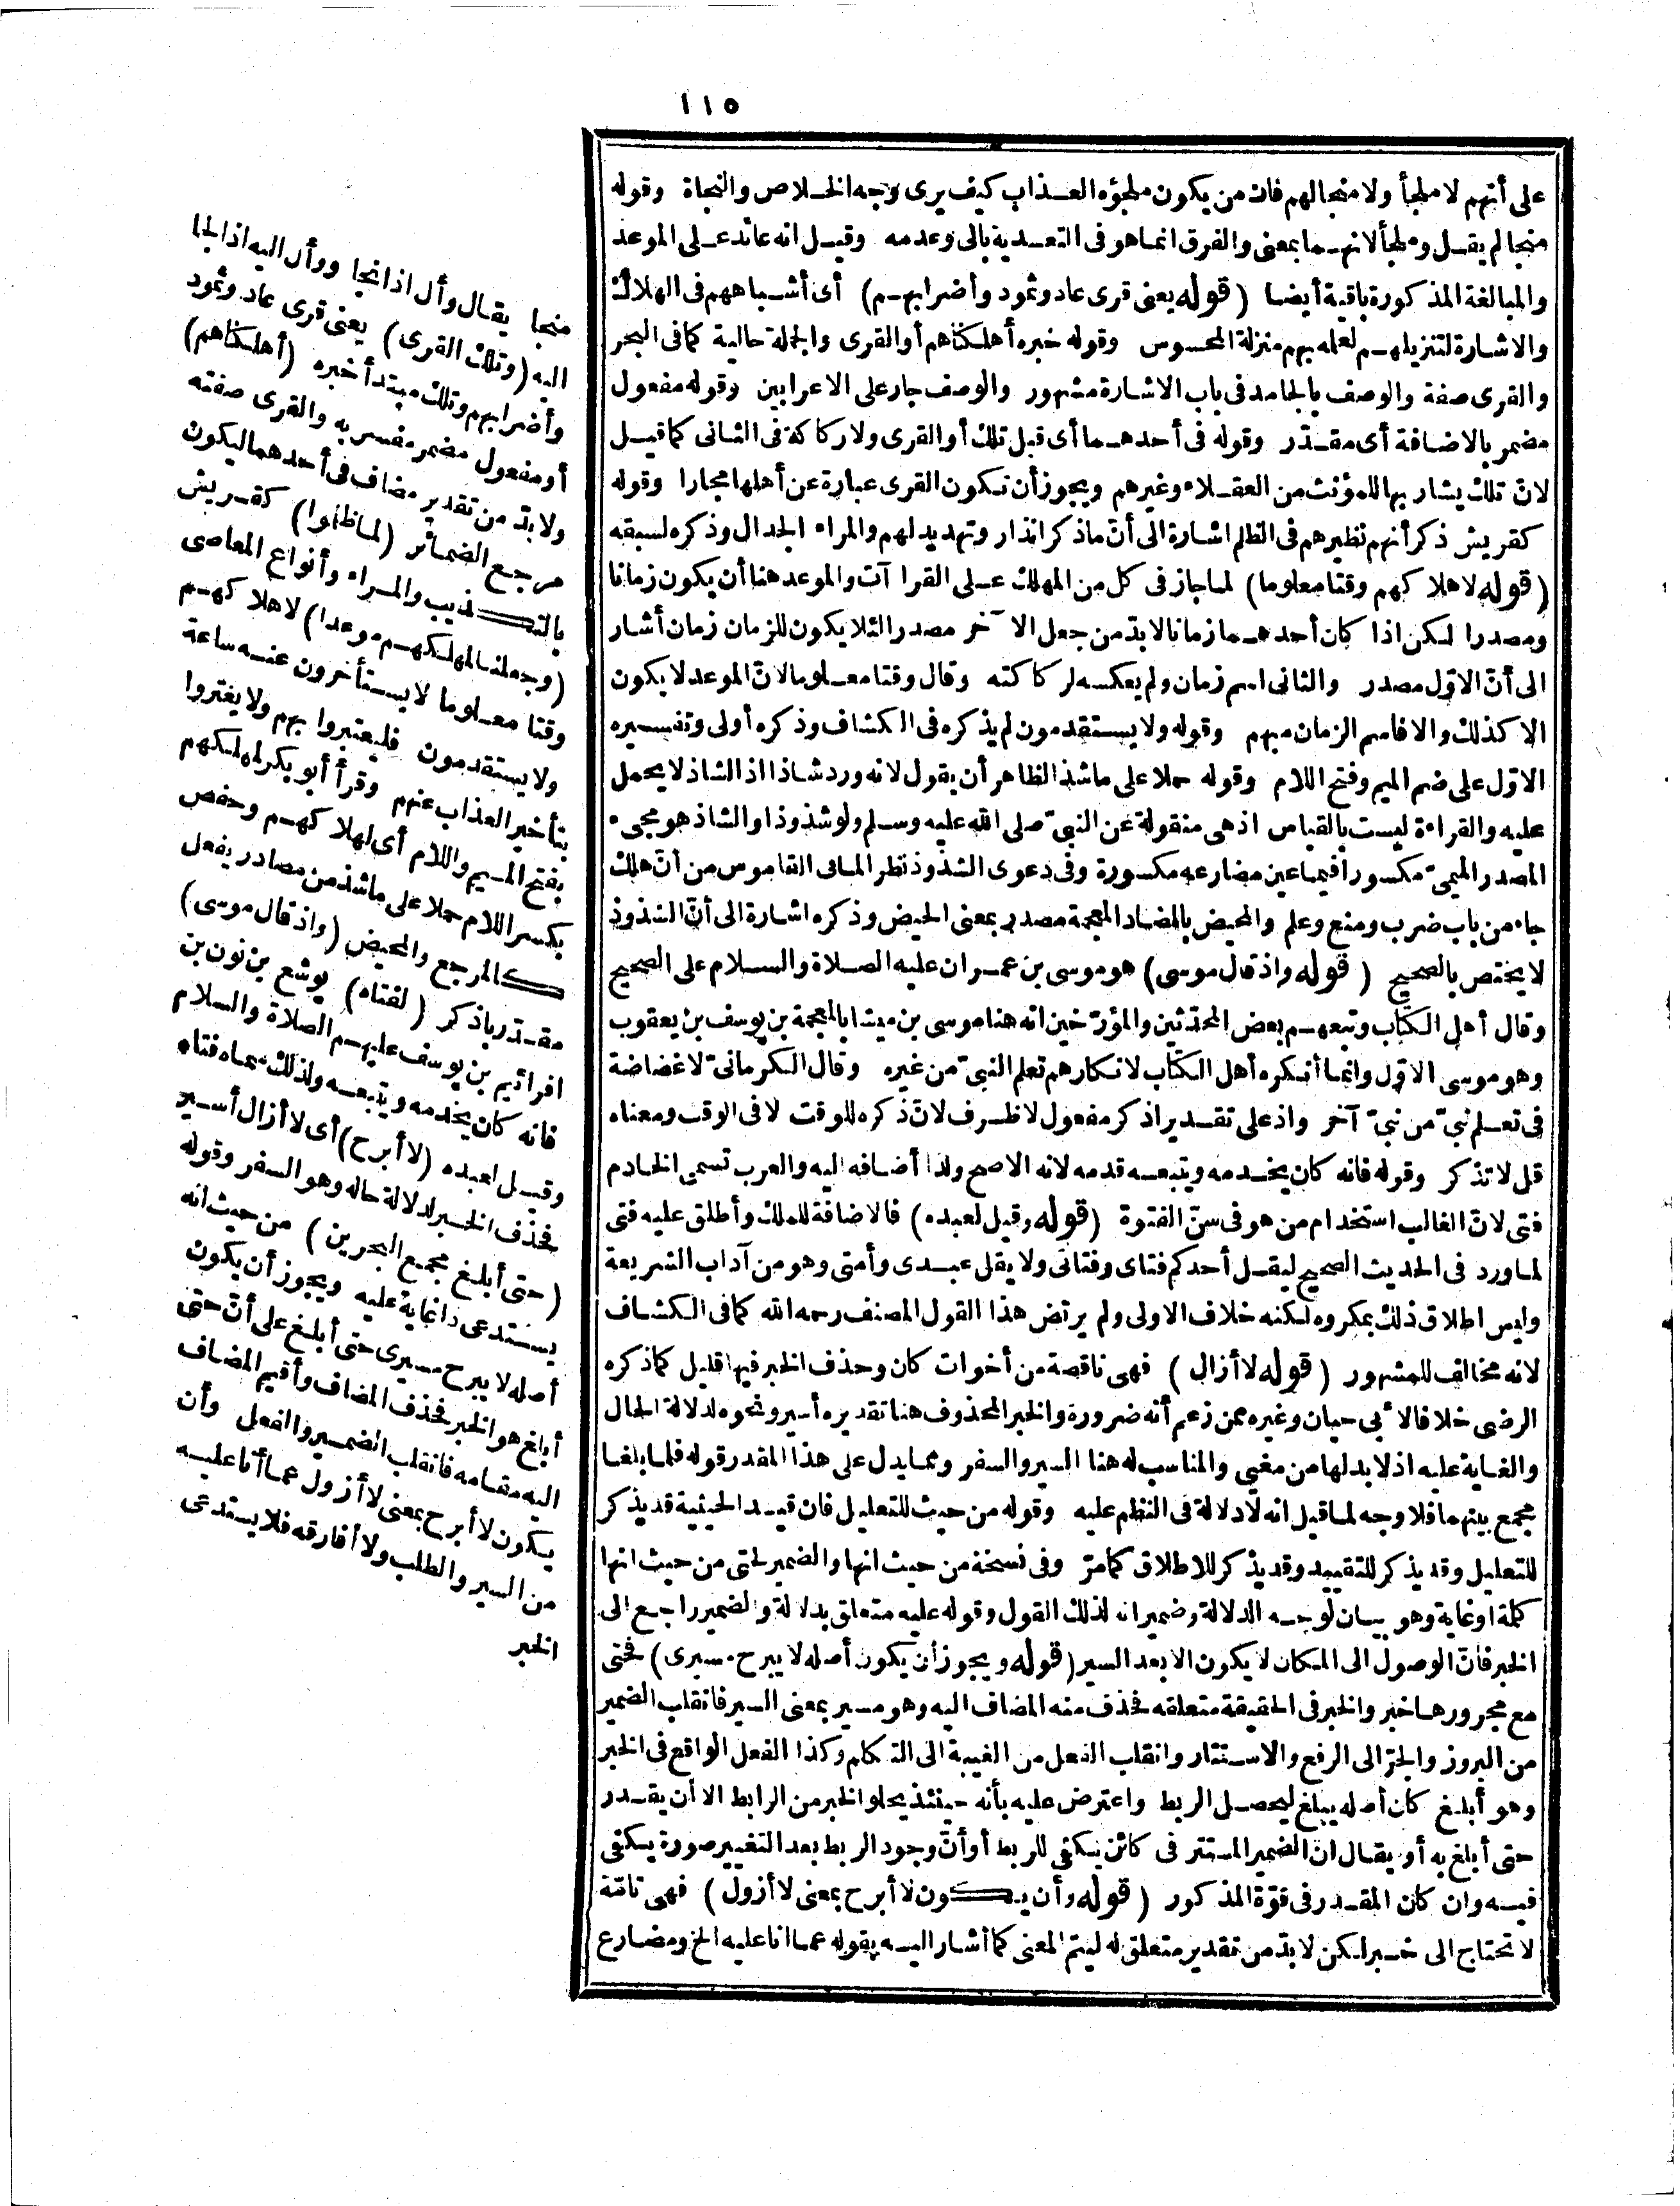 ١١٥
على أنهم لا ملجأ ولا منجا لهم فان من يكون ملجؤه العذاب كيف يرى وجه الخلاص والنجاة وقوله
منجا لم يقل وملجأ لانهما بمعنى والفرق انما هو فى التعدية بالى وعدمه وقيل انه عائد على الموعد
والمبالغة المذكورة باقية أيضا (قوله يعنى قرى عاد وثمود وأضرابهم) أى أشباههم فى الهلاك
والاشارة لتنزيلهم لعلمه بهم منزلة المحسوس وقوله خبره أهلكناهم أو القرى والجملة حالية كما فى البحر
والقرى صفة والوصف بالجامد فى باب الاشارة مشهور والوصف جار على الاعرابين وقوله مفعول
مضمر بالاضافة أى مقدّر وقوله فى أحدهما أى قبل تلك أو القرى ولا ركاكة فى الثانى كما قيل
لانّ تلك يشار بها للمؤنث من العقلاء وغيرهم ويجوز أن تكون القرى عبارة عن أهلها مجازا وقوله
كقريش ذكر أنهم نظيرهم فى الظلم اشارة الى أنّ ما ذكر انذار وتهديد لهم والمراء الجدال وذكره لسبقه
(قوله لاهلاكهم وقتا معلوما) لما جاز فى كل من المهلك على القراآت والموعد هنا أن يكون زمانا
ومصدرا لكن اذا كان أحدهما زمانا لا بدّ من جعل الآخر مصدر الئلا يكون للزمان زمان أشار
الى أنّ الاوّل مصدر والثانى اسم زمان ولم يعكسه لركاكته وقال وقتا معلوما لانّ الموعد لا يكون
الا كذلك والا فاسم الزمان مبهم وقوله ولا يستقدمون لم يذكره فى الكشاف وذكره أولى وتفسيره
الاوّل على ضم الميم وفتح اللام وقوله حملا على ما شذ الظاهر أن يقول لانه ورد شاذا اذ الشاذ لا يحمل
عليه والقراءة ليست بالقياس اذ هى منقولة عن النبىّ صلى الله عليه وسلم ولو شذوذا والشاذ هو مجىء
المصدر الميمىّ مكسورا فيما عين مضارعه مكسورة وفى دعوى الشذوذ نظر لما فى القاموس من أنّ هلك
جاء من باب ضرب ومنع وعلم والمحيض بالضاد المعجمة مصدر بمعنى الحيض وذكره اشارة الى أنّ الشذوذ
لا يختص بالصحيح (قوله واذ قال موسى) هو موسى بن عمران عليه الصلاة والسلام على الصحيح
وقال أهل الكتاب وتبعهم بعض المحدّثين والمؤرّخين انه هنا موسى بن ميشا بالمعجمة بن يوسف بن يعقوب
وهو موسى الاوّل وانما أنكره أهل الكتاب لانكارهم تعلم النبىّ من غيره وقال الكرمانىّ لا غضاضة
فى تعلم نبىّ من نبىّ آخر واذ على تقدير اذكر مفعول لا ظرف لانّ ذكره للوقت لا فى الوقت ومعناه
قل لا تذكر وقوله فانه كان يخدمه ويتبعه قدمه لانه الاصح ولذا أضافه اليه والعرب تسمى الخادم
فتى لانّ الغالب استخدام من هو فى سنّ الفتوة (قوله وقيل لعبده) فالاضافة للملك وأطلق عليه فتى
لما ورد فى الحديث الصحيح ليقل أحدكم فتاى وفتاتى ولا يقل عبدى وأمتى وهو من آداب الشريعة
وليس اطلاق ذلك بمكروه لكنه خلاف الاولى ولم يرتض هذا القول المصنف رحمه الله كما فى الكشاف
لانه مخالف للمشهور (قوله لا أزال) فهى ناقصة من أخوات كان وحذف الخبر فيها قليل كما ذكره
الرضى خلافا لأبى حيان وغيره ممن زعم أنه ضرورة والخبر المحذوف هنا تقديره أسير ونحوه لدلالة الحال
والغاية عليه اذ لا بد لها من مغيى والمناسب له هنا السير والسفر ومما يدل على هذا المقدر قوله فلما بلغا
مجمع بينهما فلا وجه لما قيل انه لا دلالة فى النظم عليه وقوله من حيث للتعليل فان قيد الحيثية قد يذكر
للتعليل وقد يذكر للتقييد وقد يذكر للاطلاق كما مرّ وفى نسخة من حيث انها والضمير لحتى من حيث انها
كلمة أو غاية وهو بيان لوجه الدلالة وضمير انه لذلك القول وقوله عليه متعلق بدلالة والضمير راجع الى
الخبر فانّ الوصول الى المكان لا يكون الا بعد السير (قوله ويجوز أن يكون أصله لا يبرح مسيرى) فحتى
مع مجرورها خبر والخبر فى الحقيقة متعلقه فحذف منه المضاف اليه وهو مسير بمعنى السير فانقلب الضمير
من البروز والجرّ الى الرفع والاستتار وانقلب الفعل من الغيبة الى التكلم وكذا الفعل الواقع فى الخبر
وهو أبلغ كان أصله يبلغ ليحصل الربط واعترض عليه بأنه حينئذ يخلو الخبر من الرابط الا أن يقدر
حتى أبلغ به أو يقال انّ الضمير المستتر فى كائن يكفى للربط أو أنّ وجود الربط بعد التغيير صورة يكفى
فيه وان كان المقدر فى قوّة المذكور (قوله وأن يكون لا أبرح بمعنى لا أزول) فهى تامّة
لا تحتاج الى خبر لكن لا بدّ من تقدير متعلق له ليتم المعنى كما أشار اليه بقوله عما أنا عليه الخ ومضارع
منجا يقال وأل اذا نجا ووأل اليه اذا لجا
اليه (وتلك القرى) يعنى قرى عاد وثمود
وأضرابهم وتلك مبتدأ خبره (أهلكناهم)
أو مفعول مضمر مفسر به والقرى صفته
ولا بدّ من تقدير مضاف فى أحدهما ليكون
مرجع الضمائر (لما ظلموا) كقريش
بالتكذيب والمراء وأنواع المعاصى
(وجعلنا لمهلكهم موعدا) لاهلاكهم
وقتا معلوما لا يستأخرون عنه ساعة
ولا يستقدمون فليعتبروا بهم ولا يغتروا
بتأخير العذاب عنهم وقرأ أبو بكر لمهلكهم
بفتح الميم واللام أى لهلاكهم وحفص
بكسر اللام حملا على ما شذ من مصادر يفعل
كالمرجع والمحيض (واذ قال موسى)
مقدّر باذكر (لفتاه) يوشع بن نون بن
افرائيم بن يوسف عليهم الصلاة والسلام
فانه كان يخدمه ويتبعه ولذلك سماه فتاه
وقيل لعبده (لا أبرح) أى لا أزال أسير
فحذف الخبر لدلالة حاله وهو السفر وقوله
(حتى أبلغ مجمع البحرين) من حيث انه
يستدعى ذا غاية عليه ويجوز أن يكون
أصله لا يبرح مسيرى حتى أبلغ على أنّ حتى
أبلغ هو الخبر فحذف المضاف وأقيم المضاف
اليه مقامه فانقلب الضمير والفعل وأن
يكون لا أبرح بمعنى لا أزول عما أنا عليه
من السير والطلب ولا أفارقه فلا يستدعى
الخبر